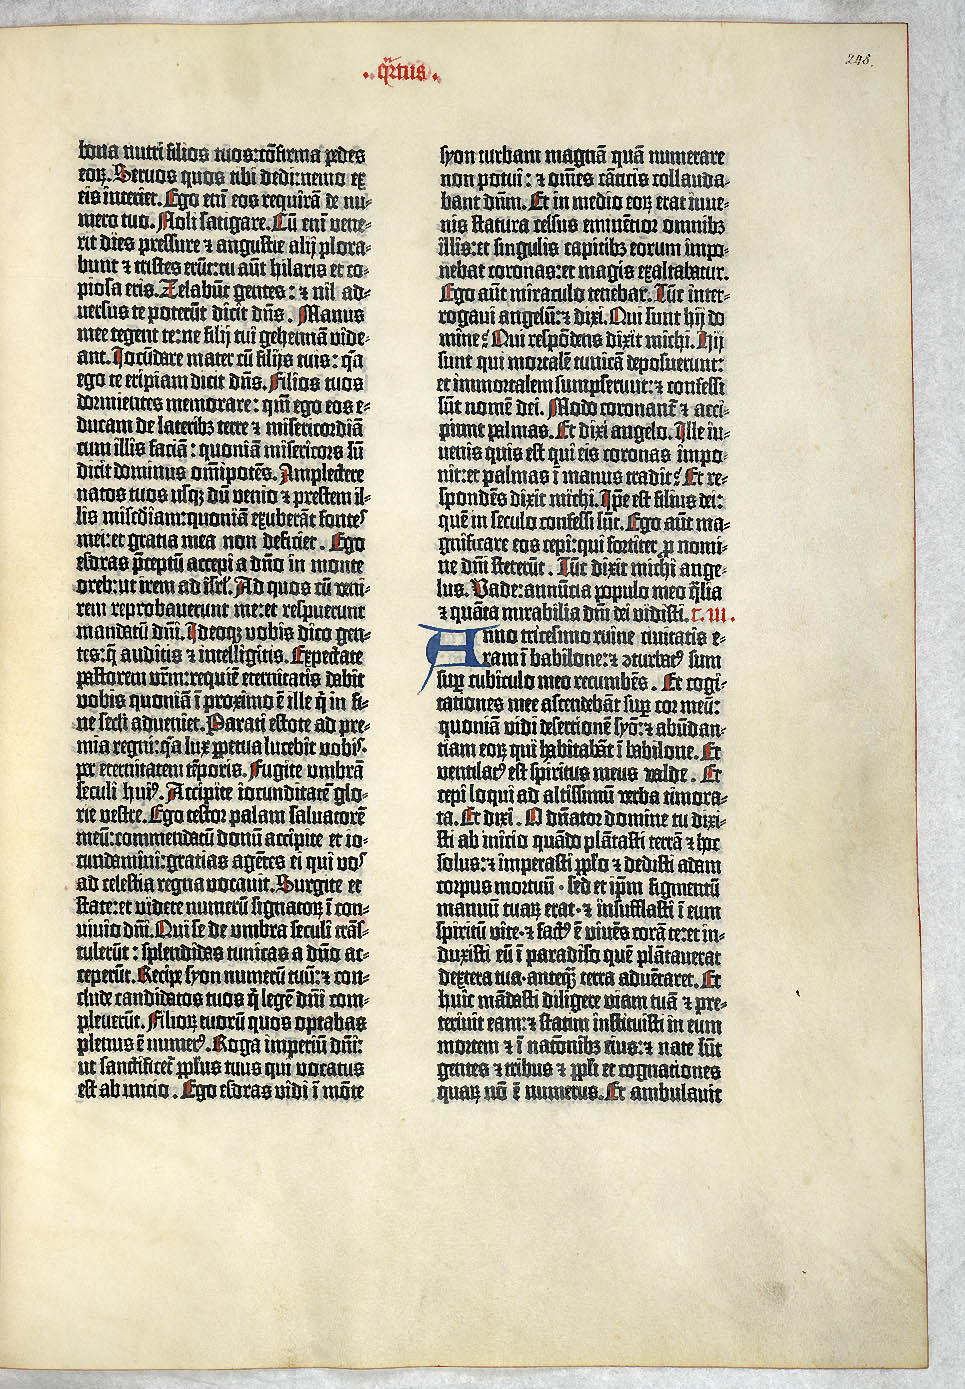 .qrtus.
248.
bona nutri filios tuos: cōfirma pedes
eoꝝ. Servos quos tibi dedi: nemo ex
eis interiet. Ego enī eos requirā de nu-
mero tuo. Noli satigare. Cū enī vene-
rit dies pressure ⁊ angustie alij plora-
bunt ⁊ tristes erūt: tu aūt hilaris et co-
piosa eris. Zelabūt gentes: ⁊ nil ad-
versus te poterūt dicit dn̄s. Manus
mee tegent te: ne filij tui gehennā vide-
ant. Jocūdare mater cū filijs tuis: q̄a
ego te eripiam dicit dn̄s. Filios tuos
dormientes memorare: qm̄ ego eos e-
ducam de lateribꝫ terre ⁊ misericordiā
cum illis faciā: quoniā misericors sū
dicit dominus om̄ipotēs. Amplectere
natos tuos usqꝫ dū venio ⁊ prestem il-
lis miscdiam: quoniā exuberāt fontes
mei: et gratia mea non deficiet. Ego
esdras p̄ceptū accepi a dn̄o in monte
oreb: ut irem ad isrl'. Ad quos cū veni-
rem reprobaverunt me: et respuerunt
mandatū dn̄i. Ideoqꝫ vobis dico gen-
tes: q̄ auditis ⁊ intelligitis. Expectate
pastorem vr̄m: requiē eternitatis dabit
vobis quoniā ī proximo ē ille q̄ in fi-
ne secli adveniet. Parati estote ad pre-
mia regni: q̄a lux ꝑpetua lucebit vobis
pr eternitatem tēporis. Fugite umbrā
seculi huiꝰ. Accipite iocunditatē glo-
rie vestre. Ego testor palam salvatorē
meū: commendatū donū accipite et io-
cundamini: gratias agētes ei qui vos
ad celestia regna vocavit. Surgite et
state: et videte numerū signatoꝝ ī con-
vivio dn̄i. Qui se de umbra seculi trās-
tulerūt: splendidas tunicas a dn̄o ac-
ceperūt. Recipe syon numerū tuū: ⁊ con-
clude candidatos tuos q̄ legē dn̄i com-
pleverūt. Filioꝝ tuorū quos optabas
plenus ē numerꝰ. Roga imperiū dn̄i:
ut sanctificet' ppl̄us tuus qui vocatus
est ab inicio. Ego esdras vidi ī mōte
syon turbam magnā quā numerare
non potui: ⁊ om̄es cāticis collauda-
bant dn̄m. Et in medio eoꝝ erat iuve-
nis statura celsus eminētior omnibꝫ
illis: et singulis capitibꝫ eorum impo-
nebat coronas: et magis exaltabatur.
Ego aūt miraculo tenebar. Tūc inter-
rogavi angelū: ⁊ dixi. Qui sunt hij do
mine? Qui respōdens dixit michi. Hij
sunt qui mortalē tunicā deposuerunt:
et immortalem sumpserunt: ⁊ confessi
sūt nomē dei. Modo coronant' ⁊ acci-
piunt palmas. Et dixi angelo. Ille iu-
venis quis est qui eis coronas impo-
nit: et palmas ī manus tradit? Et re-
spondēs dixit michi. Ip̄e est filius dei:
quē in seculo confessi sūt. Ego aūt ma-
gnificare eos cepi: qui fortiter ꝓ nomi-
ne dn̄i steterūt. Tūc dixit michi ange-
lus. Vade: annūcia populo meo q̄lia
⁊ quāta mirabilia dn̄i dei vidisti. c. III.
Anno tricesimo ruine civitatis e-
ram ī babilone: ⁊ ꝯturbatꝰ sum
suꝑ cubiculo meo recumbēs. Et cogi-
tationes mee ascendebāt suꝑ cor meū:
quoniā vidi desertionē syō: ⁊ abūdan-
tiam eoꝝ qui habitabāt ī babilone. Et
ventilatꝰ est spiritus meus valde. Et
cepi loqui ad altissimū verba timora-
ta. Et dixi. O dn̄ator domine tu dixi-
sti ab inicio quādo plātasti terrā ⁊ hoc
solus: ⁊ imperasti ppl̄o ⁊ dedisti adam
corpus mortuū· sed et ip̄m figmentū
manuū tuaꝝ erat· ⁊ insufflasti ī eum
spiritū vite· ⁊ factꝰ ē vivēs corā te: et in-
duxisti eū ī paradiso quē plātaverat
dextera tua· anteqꝫ terra advētaret. Et
huic mādasti diligere viam tuā ⁊ pre-
terivit eam: ⁊ statim instituisti in eum
mortem ⁊ ī natōnibꝫ eius: ⁊ nate sūt
gentes ⁊ tribus ⁊ ppl̄i et cognationes
quaꝝ nō ē numerus. Et ambulavit